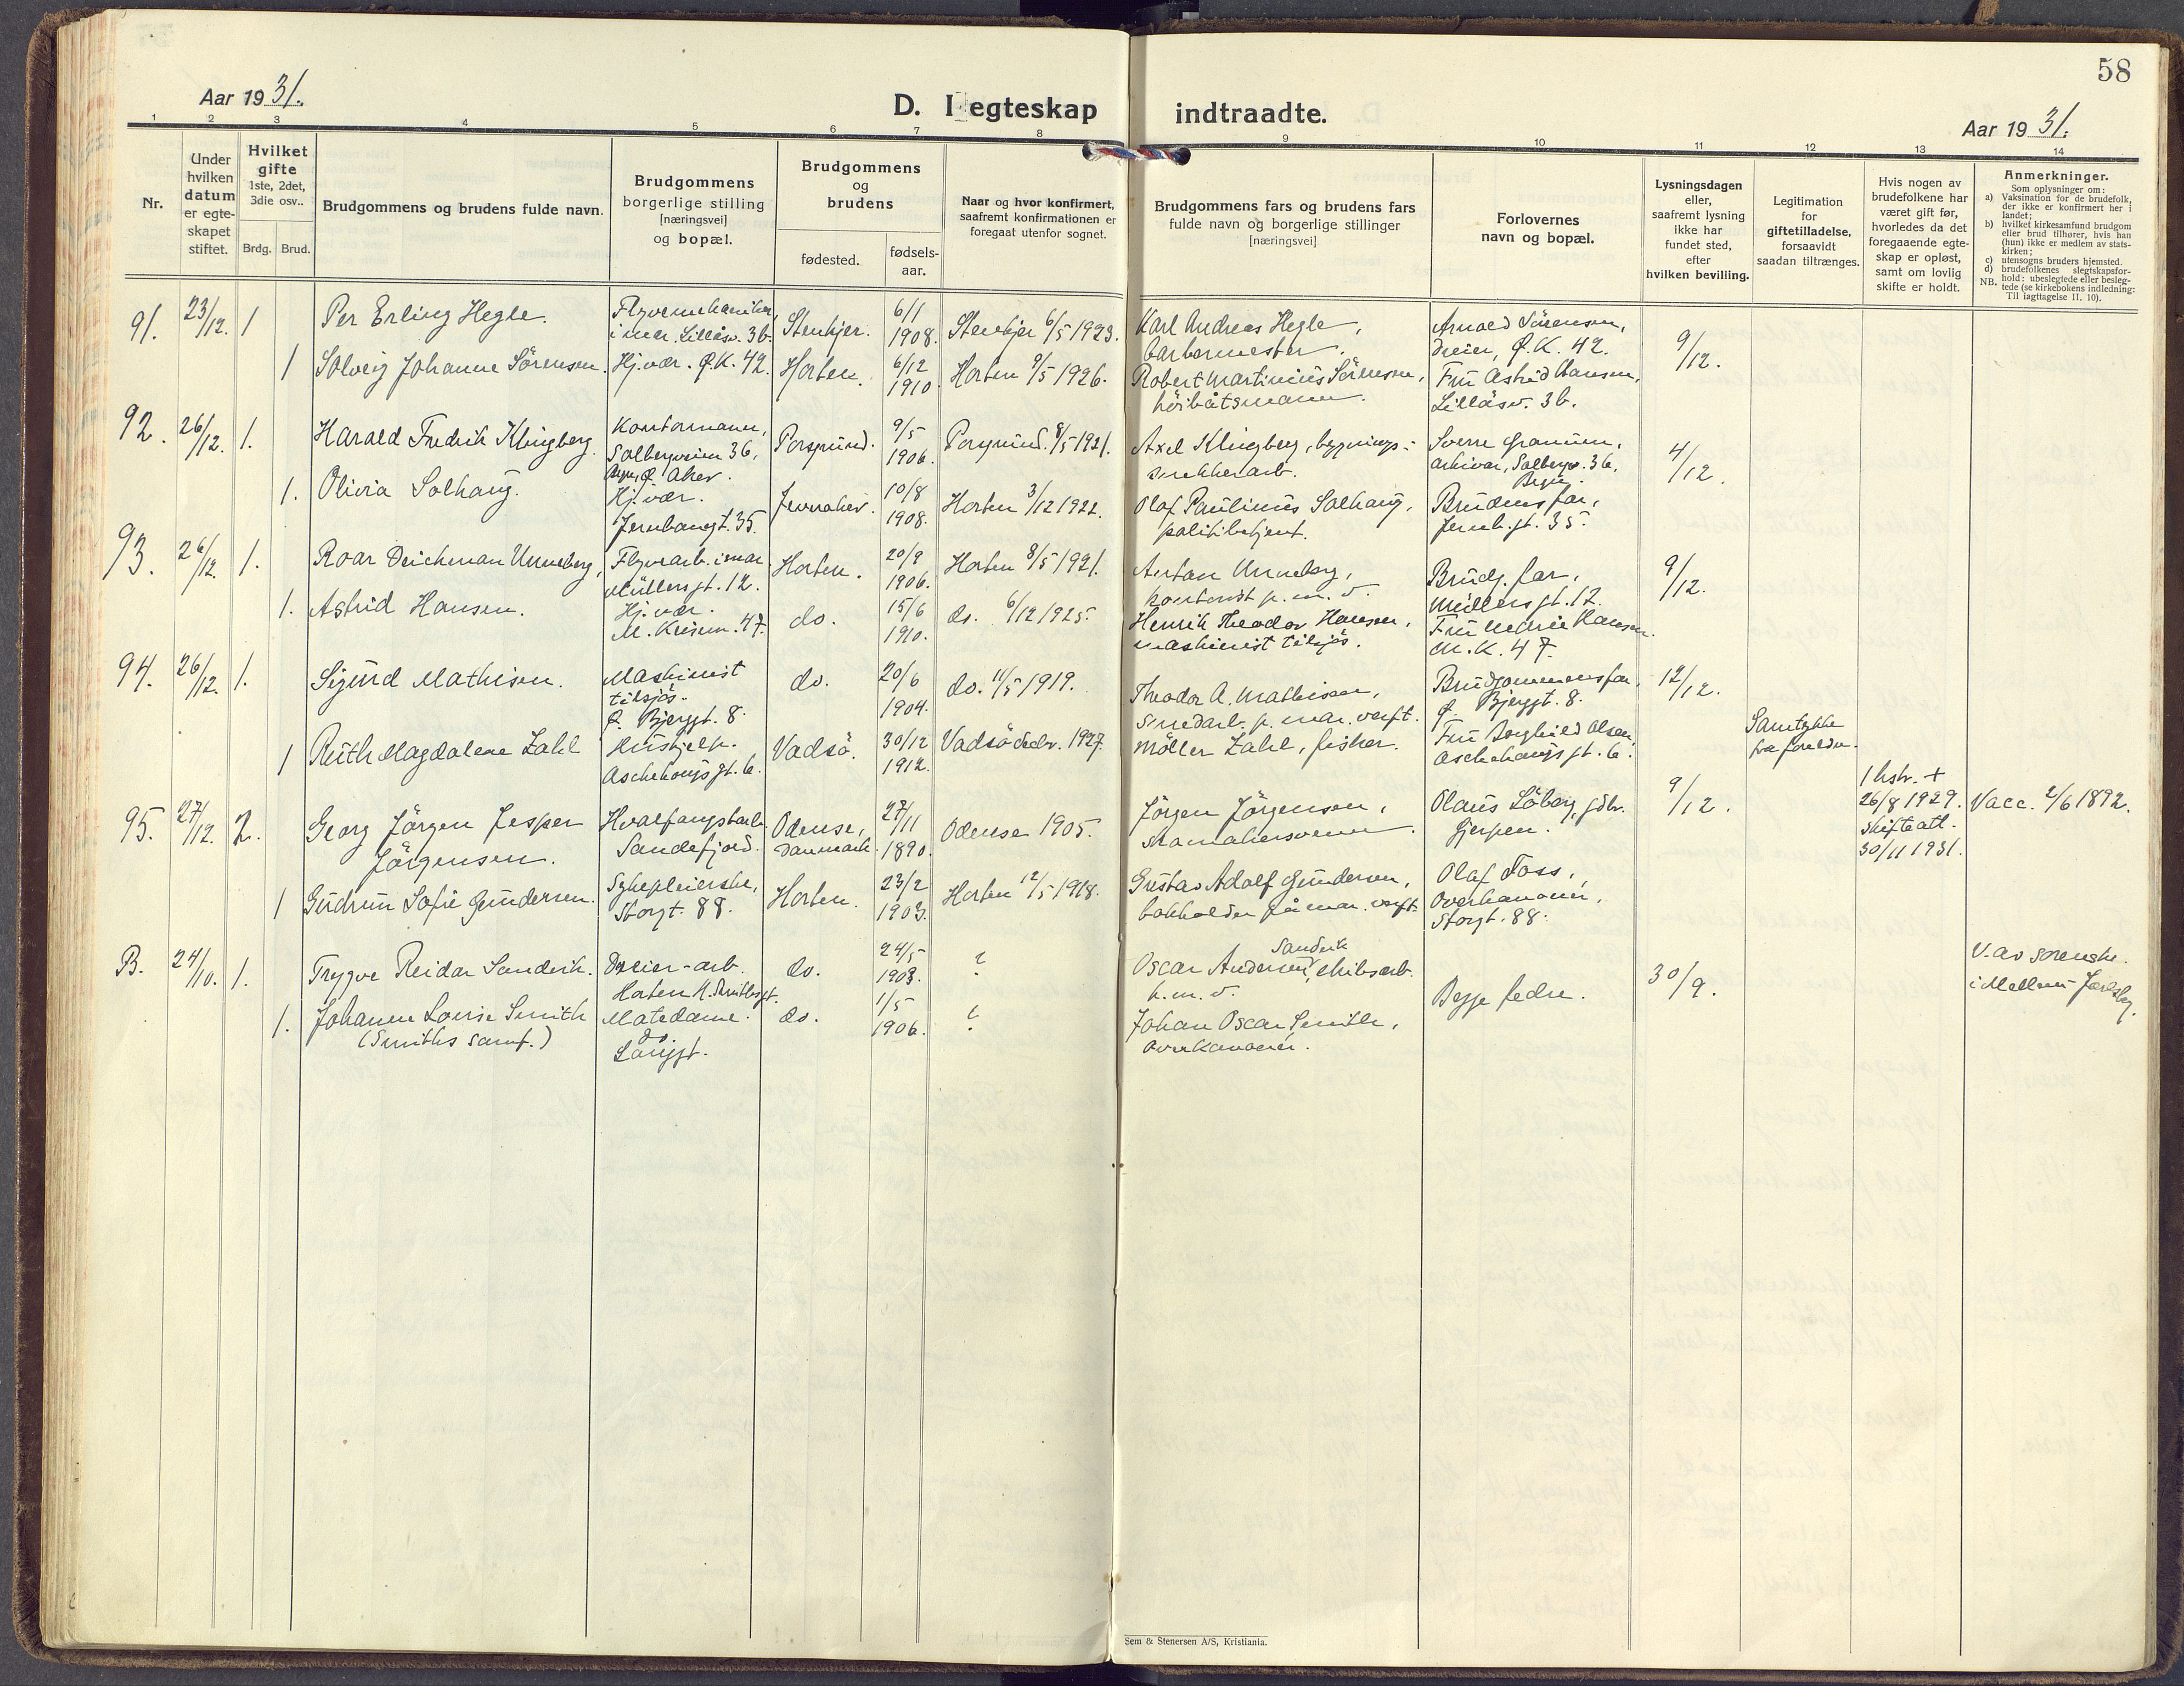 58
Aar 1931.
D. I egteskap indtraadte.
Aar 1931.
1 2 3 4 5 6 7 8 9 10 11 12 13 14
Nr.
Under
hvilken
datum
er egte-
skapet
stiftet.
Hvilket
gifte
1ste, 2det,
3die osv..
Brdg. Brud.
Brudgommens og brudens fulde navn.
Brudgommens
borgerlige stilling
[næringsvei]
og bopæl.
Brudgommens
og
brudens
fødested.
fødsels-
aar.
Naar og hvor konfirmert,
saafremt konfirmationen er
foregaat utenfor sognet.
Brudgommens fars og brudens fars
fulde navn og borgerlige stillinger
[næringsvei]
Forlovernes
navn og bopæl.
Lysningsdagen
eller,
saafremt lysning
ikke har
fundet sted,
efter
hvilken bevilling.
Legitimation
for
giftetilladelse,
forsaavidt
saadan tiltrænges.
Hvis nogen av
brudefolkene har
været gift før,
hvorledes da det
foregaaende egte-
skap er opløst,
samt om lovlig
skifte er holdt.
Anmerkninger.
Som oplysninger om:
a) Vaksination for de brudefolk,
der ikke er konfirmert her i
landet;
b) hvilket kirkesamfund brudgom
eller brud tilhører, hvis han
(hun) ikke er medlem av stats-
kirken;
c) utensogns bruders hjemsted.
d) brudefolkenes slegtskapsfor-
hold: ubeslegtede eller besleg-
NB. tede (se kirkebokens indledning:
Til iagttagelse II. 10).
91. 23/12. 1
Per Erling Hegle.
Flyvemekaniker
i mar. Lillåsv. 3b.
Stenkjer.
6/1
1908.
Stenkjer 6/5 1923.
Karl Andreas Hegle,
barbermester.
Arnold Sörensen,
dreier, Q.K. 42.
9/12.
1
Solveig Johanne Sörensen.
Hj.vær. Q.K. 42.
Horten.
6/12
1910
Horten 9/5 1926.
Robert Martinius Sörensen,
höibåtsmann.
Fru Astrid Hansen,
Lillåsv. 3b.
92. 26/12. 1.
Harald Fredrik Klingberg.
Kontormann,
Solbergveien 36,
Aker.
Porsgrund.
9/5
1906.
Porsgrund. 8/5 1921.
Axel Klingberg, bygnings-
snekkerarb.
Sverre Gramen,
arkivar, Solbergv. 36,
4/12.
1.
Olivia Solhaug.
Hj.vær.
Jernbanegt. 35.
10/8
1908.
Horten 3/12 1922.
Olaf Paulinius Solhaug,
politibetjent.
Brudens far,
Jernb.gt. 35.
93. 26/12. 1.
Roar Deichman Unneberg,
Flyvearb. i mar.
Müllersgt. 12.
Horten.
20/9
1906.
Horten 8/5 1921.
Anton Unneberg,
Brudg. far,
Müllersgt. 12.
9/12.
1.
Astrid Hansen.
Hj.vær.
M. Krisem. 47.
do.
15/6
1910.
do. 6/12 1925.
Henrik Theodor Hansen,
maskinist tilsjös.
Fru Marie Hansen.
M.K. 47.
94. 26/12. 1.
Sigurd Mathisen.
Maskinist
tilsjös.
Q. Bjerggt. 8.
do.
20/6
1904.
do. 11/5 1919.
Theodor A. Mathisen,
smedarb. p. mar. verft.
Brudgommens far,
Q. Bjerggt. 8.
12/12.
1
Ruth Magdalene Zahl
Hushjelp.
Aschehougsgt. 6.
Vadsö.
30/12
1912.
Vadsö Decbr. 1927.
Möller Zahl, fisker.
Fru Borghild Olsen,
Aschehougsgt. 6.
Samtykke
fra foreldre.
95. 27/12. 2.
Georg Jörgen Jesper
Jörgensen.
Hvalfangstarb.
Sandefjord.
Odense,
Danmark.
27/11
1890.
Odense 1905.
Jörgen Jörgensen,
skomakersvenn.
Olaus Löberg, gdbr.
Gjerpen.
9/12.
1 hstr. +
26/8 1929.
skifteatt.
30/11 1931.
Vacc. 2/6 1892.
1
Gudrun Sofie Gundersen.
Sykepleierske,
Storgt. 88.
Horten.
23/2
1903.
Horten 12/5 1918.
Gustav Adolf Gundersen,
bokholder på mar. verft.
Olaf Foss,
Overkanoner,
Storgt. 88.
B. 24/10. 1.
Trygve Reidar Sandvik.
Dreier-arb.
do.
24/5
1903.
?
Sandvik
Oscar Andersen, skibsarb.
h.m.v.
Begge fedre.
30/9.
V. av sorenskr.
i Mellem Jarlsberg.
1.
Johanne Lovise Smith
(Smiths samf.)
Matedame.
do
Langgt.
do.
1/5
1906.
?
Johan Oscar Smith,
overkanoner.
Sem & Stenersen A/S, Kristiania.